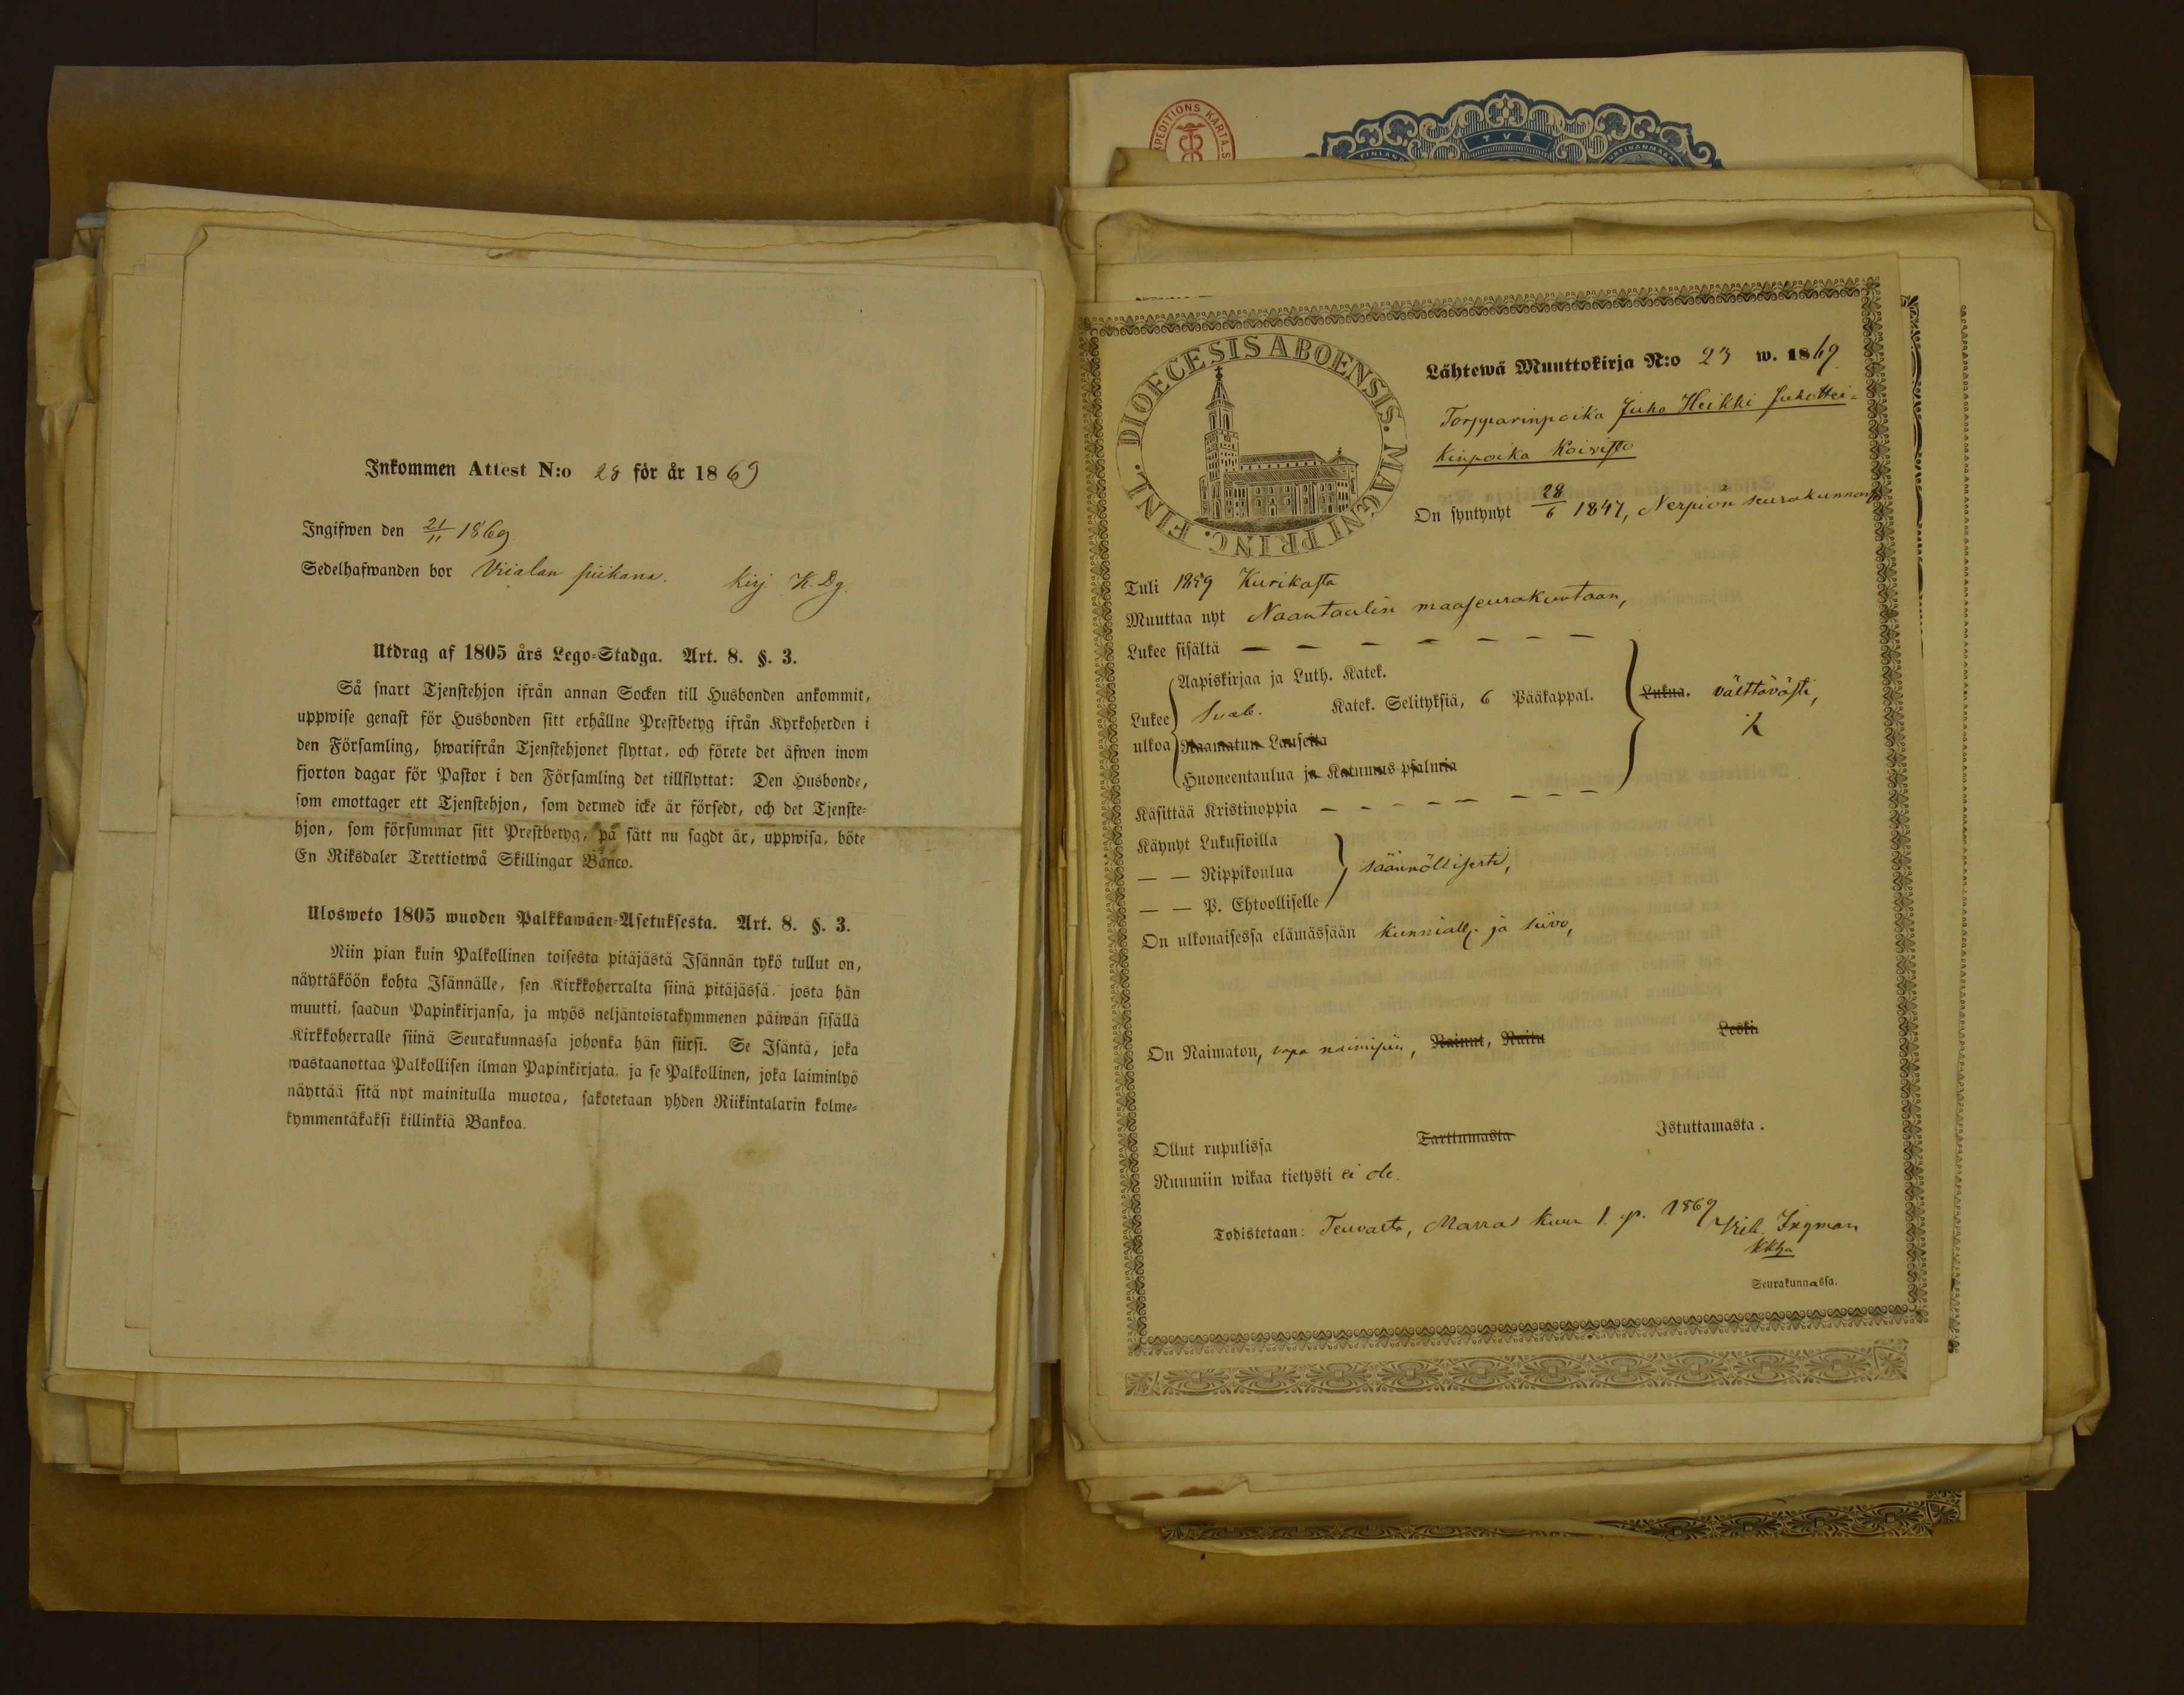 Inkommen Attest N:o 28 för år 1869
Ingifwen den 21/11 1869
Sedelhafwanden bor Viialan piikana. Kirj. K. Dg.
Utdrag af 1805 års Lego-Stadga. Art. 8. §. 3.
Så snart Tjenstehjon ifrån annan Socken till Husbonden ankommit,
uppwise genast för Husbonden sitt erhållne Prestbetyg ifrån Kyrkoherden i
den Församling, hwarifrån Tjenstehjonet flyttat, och förete det äfwen inom
fjorton dagar för Pastor i den Församling det tillflyttat: Den Husbonde,
som emottager ett Tjenstehjon, som dermed icke är försedt, och det Tjenste-
hjon, som försummar sitt Prestbetyg, på sätt nu sagdt är, uppwisa, böte
En Riksdaler Trettiotwå Skillingar Banco.
Ulosweto 1805 wuoden Palkkawäen-Asetuksesta. Art. 8. §. 3.
Niin pian kuin Palkollinen toisesta pitäjästä Isännän tykö tullut on,
näyttäköön kohta Isännälle, sen Kirkkoherralta siinä pitäjässä, josta hän
muutti, saadun Papinkirjansa, ja myös neljäntoistakymmenen päiwän sisällä
Kirkkoherralle siinä Seurakunnassa johonka hän siirsi. Se Isäntä, joka
wastaanottaa Palkollisen ilman Papinkirjata, ja se Palkollinen, joka laiminlyö
näyttää sitä nyt mainitulla muotoa, sakotetaan yhden Riikintalarin kolme-
kymmentäkaksi killinkiä Bankoa.
EXPEDITIONS KARTA S
TVÅ
FINLAN
DIOECESIS ABOENSIS. MAGNI PRINC. FINL.
Lähtewä Muuttokirja N:o 23 w. 1869
Torpparinpoika Juho Heikki Juho Hei-
kinpoika Koivisto
On syntynyt 28/6 1847, Nerpiön seurakunnass
Tuli 1859 Kurikasta
Muuttaa nyt Naantaalin maaseurakuntaan,
Lukee sisältä — — — — — — —
Aapiskirjaa ja Luth. Katek.
Lukee Svab. Katek. Selityksiä, 6 Pääkappal. Lukua. välttävästi,
ulkoa Raamatun Lauseita
Huoneentaulua ja Katumus psalmia
Käsittää Kristinoppia — — — — — — — —
Käynyt Lukusioilla
— — Rippikoulua säännöllisesti,
— — P. Ehtoollisella
On ulkonaisessa elämässään kunniall. ja siivo,
On Naimaton, vapa naimisiin, Nainut, Naitu Leski.
Ollut rupulissa Tarttumasta Istuttamasta.
Ruumiin wikaa tietysti ei ole.
Todistetaan: Teuvalta, Marras kuun 1. p. 1869 Vilh. Ingman
Kkha
Seurakunnassa.